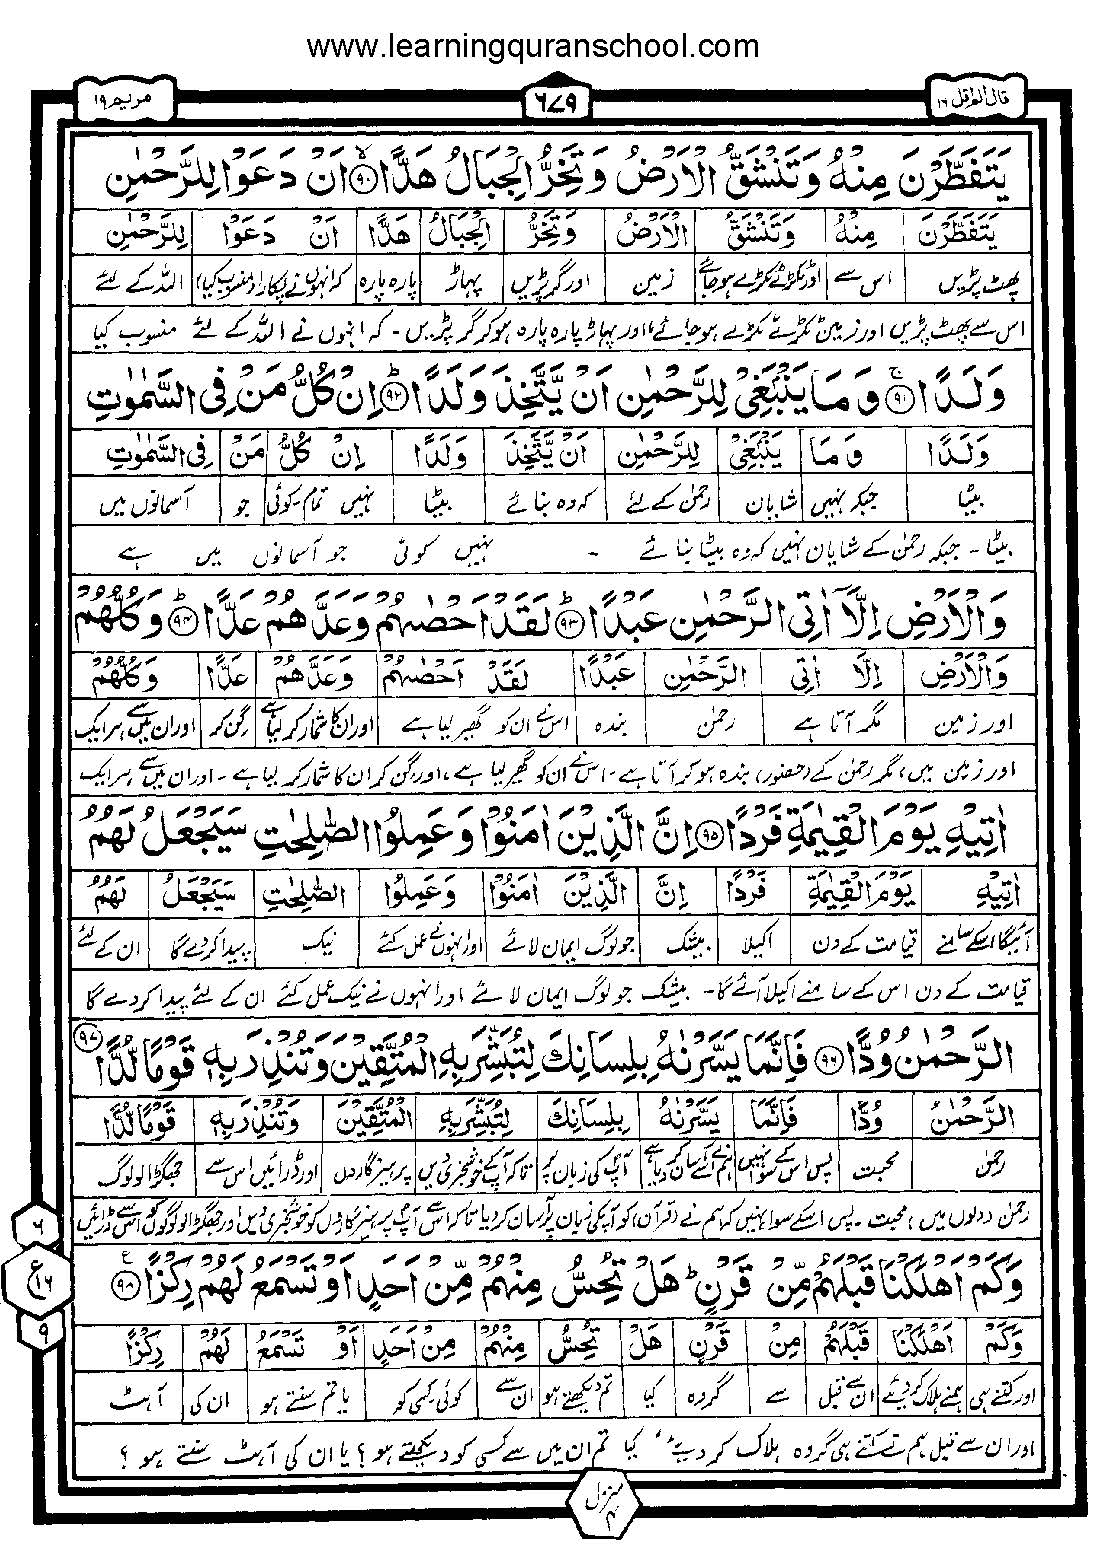 www.learningquranschool.com
قال الم اقل ١٦ ٦٧٩ مریم ١٩
يَتَفَطَّرْنَ مِنْهُ وَتَنْشَقُّ الْاَرْضُ وَتَخِرُّ الْجِبَالُ هَدًّا ﴿٩٠﴾ اَنْ دَعَوْا لِلرَّحْمٰنِ
يَتَفَطَّرْنَ مِنْهُ وَتَنْشَقُّ الْاَرْضُ وَتَخِرُّ الْجِبَالُ هَدًّا اَنْ دَعَوْا لِلرَّحْمٰنِ
پھٹ پڑیں اس سے اور ٹکڑے ٹکڑے ہوجائے زمین اور گر پڑیں پہاڑ پارہ پارہ کہ انہوں نے پکارا (منسوب کیا) اللہ کے لئے
اس سے پھٹ پڑیں اور زمین ٹکڑے ٹکڑے ہو جائے، اور پہاڑ پارہ پارہ ہو کر گر پڑیں۔ کہ انہوں نے اللہ کے لئے منسوب کیا
وَلَدًا ﴿٩١﴾ وَمَا يَنْبَغِيْ لِلرَّحْمٰنِ اَنْ يَّتَّخِذَ وَلَدًا ﴿٩٢﴾ اِنْ كُلُّ مَنْ فِي السَّمٰوٰتِ
وَلَدًا وَمَا يَنْبَغِيْ لِلرَّحْمٰنِ اَنْ يَّتَّخِذَ وَلَدًا اِنْ كُلُّ مَنْ فِي السَّمٰوٰتِ
بیٹا جبکہ نہیں شایان رحمٰن کے لئے کہ وہ بنائے بیٹا نہیں تمام۔کوئی جو آسمانوں میں
بیٹا۔ جبکہ رحمٰن کے شایان نہیں کہ وہ بیٹا بنائے ۔ نہیں کوئی جو آسمانوں میں ہے
وَالْاَرْضِ اِلَّآ اٰتِي الرَّحْمٰنِ عَبْدًا ﴿٩٣﴾ لَقَدْ اَحْصٰىهُمْ وَعَدَّهُمْ عَدًّا ﴿٩٤﴾ وَكُلُّهُمْ
وَالْاَرْضِ اِلَّا اٰتِي الرَّحْمٰنِ عَبْدًا لَقَدْ اَحْصٰىهُمْ وَعَدَّهُمْ عَدًّا وَكُلُّهُمْ
اور زمین مگر آتا ہے رحمٰن بندہ اس نے ان کو گھیر لیا ہے اور ان کا شمار کر لیا ہے گن کر اور ان میں سے ہر ایک
اور زمین میں، مگر رحمٰن کے (حضور) بندہ ہو کر آتا ہے۔ اس نے ان کو گھیر لیا ہے، اور گن کر ان کا شمار کر لیا ہے۔ اور ان میں سے ہر ایک
اٰتِيْهِ يَوْمَ الْقِيٰمَةِ فَرْدًا ﴿٩٥﴾ اِنَّ الَّذِيْنَ اٰمَنُوْا وَعَمِلُوا الصّٰلِحٰتِ سَيَجْعَلُ لَهُمُ
اٰتِيْهِ يَوْمَ الْقِيٰمَةِ فَرْدًا اِنَّ الَّذِيْنَ اٰمَنُوْا وَعَمِلُوا الصّٰلِحٰتِ سَيَجْعَلُ لَهُمُ
آئیگا اسکے سامنے قیامت کے دن اکیلا بیشک جو لوگ ایمان لائے اور انہوں نے عمل کئے نیک پیدا کردے گا ان کے لئے
قیامت کے دن اس کے سامنے اکیلا آئے گا۔ بیشک جو لوگ ایمان لائے اور انہوں نے نیک عمل کئے ان کے لئے پیدا کر دے گا
الرَّحْمٰنُ وُدًّا ﴿٩٦﴾ فَاِنَّمَا يَسَّرْنٰهُ بِلِسَانِكَ لِتُبَشِّرَ بِهِ الْمُتَّقِيْنَ وَتُنْذِرَ بِهٖ قَوْمًا لُّدًّا ﴿٩٧﴾
الرَّحْمٰنُ وُدًّا فَاِنَّمَا يَسَّرْنٰهُ بِلِسَانِكَ لِتُبَشِّرَ بِهِ الْمُتَّقِيْنَ وَتُنْذِرَ بِهٖ قَوْمًا لُّدًّا
رحمٰن محبت پس اس کے سوا نہیں ہم نے اسے آسان کر دیا ہے آپ کی زبان پر تاکہ آپ خوشخبری دیں پرہیزگاروں اور ڈرائیں اس سے جھگڑالو لوگ
رحمٰن (دلوں میں) محبت۔ پس اسکے سوا نہیں کہ ہم نے (قرآن) کو آپکی زبان پر آسان کر دیا تاکہ اس سے آپ پرہیزگاروں کو خوشخبری دیں اور جھگڑالو لوگوں کو اس سے ڈرائیں
وَكَمْ اَهْلَكْنَا قَبْلَهُمْ مِّنْ قَرْنٍ ۭ هَلْ تُحِسُّ مِنْهُمْ مِّنْ اَحَدٍ اَوْ تَسْمَعُ لَهُمْ رِكْزًا ﴿٩٨﴾
وَكَمْ اَهْلَكْنَا قَبْلَهُمْ مِنْ قَرْنٍ هَلْ تُحِسُّ مِنْهُمْ مِنْ اَحَدٍ اَوْ تَسْمَعُ لَهُمْ رِكْزًا
اور کتنے ہی ہم نے ہلاک کر دئیے ان سے قبل سے گروہ کیا تم دیکھتے ہو ان سے کوئی۔کسی کو یا تم سنتے ہو ان کی آہٹ
اور ان سے قبل ہم نے کتنے ہی گروہ ہلاک کر دیے، کیا تم ان میں سے کسی کو دیکھتے ہو؟ یا ان کی آہٹ سنتے ہو؟
٦
ع ١٦
٩
منزل ٤